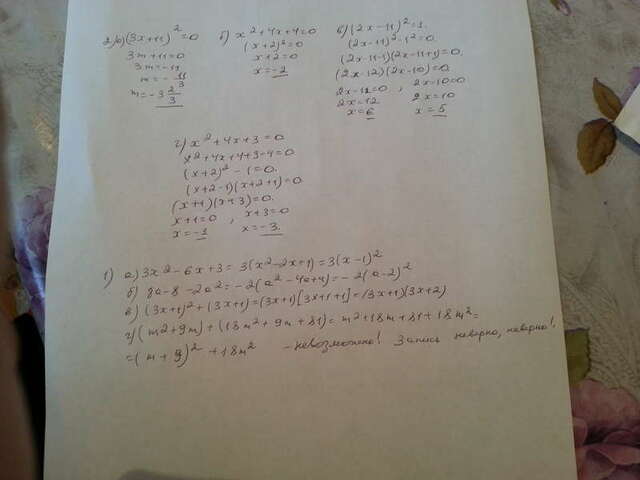 2) а) (3x+11)² = 0
3m+11=0
3m=-11
m=-11/3
m=-3 2/3
б) x²+4x+4=0
(x+2)²=0
x+2=0
x=-2
в) (2x-11)²=1.
(2x-11)²-1²=0.
(2x-11-1)(2x-11+1)=0.
(2x-12)(2x-10)=0.
2x-12=0 , 2x-10=0
2x=12 2x=10
x=6 x=5
г) x²+4x+3=0
x²+4x+4+3-4=0
(x+2)²-1=0.
(x+2-1)(x+2+1)=0
(x+1)(x+3)=0.
x+1=0 , x+3=0
x=-1 x=-3.
1) а) 3x²-6x+3=3(x²-2x+1)=3(x-1)²
б) 8a-8-2a²=-2(a²-4a+4)=-2(a-2)²
в) (3x+1)²+(3x+1)=(3x+1)[3x+1+1]=(3x+1)(3x+2)
г) (m²+9m)+(18m²+9m+81)=m²+18m+81+18m²=
=(m+9)²+18m² - невозможно! Запись неверно, неверно!